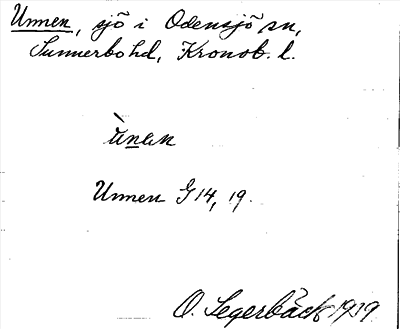 Unnen, sjö i Odensjö sn,
Sunnerbo hd, Kronob. l.
ùnən
Unnen G 14, 19.
O. Segerbäck 1939